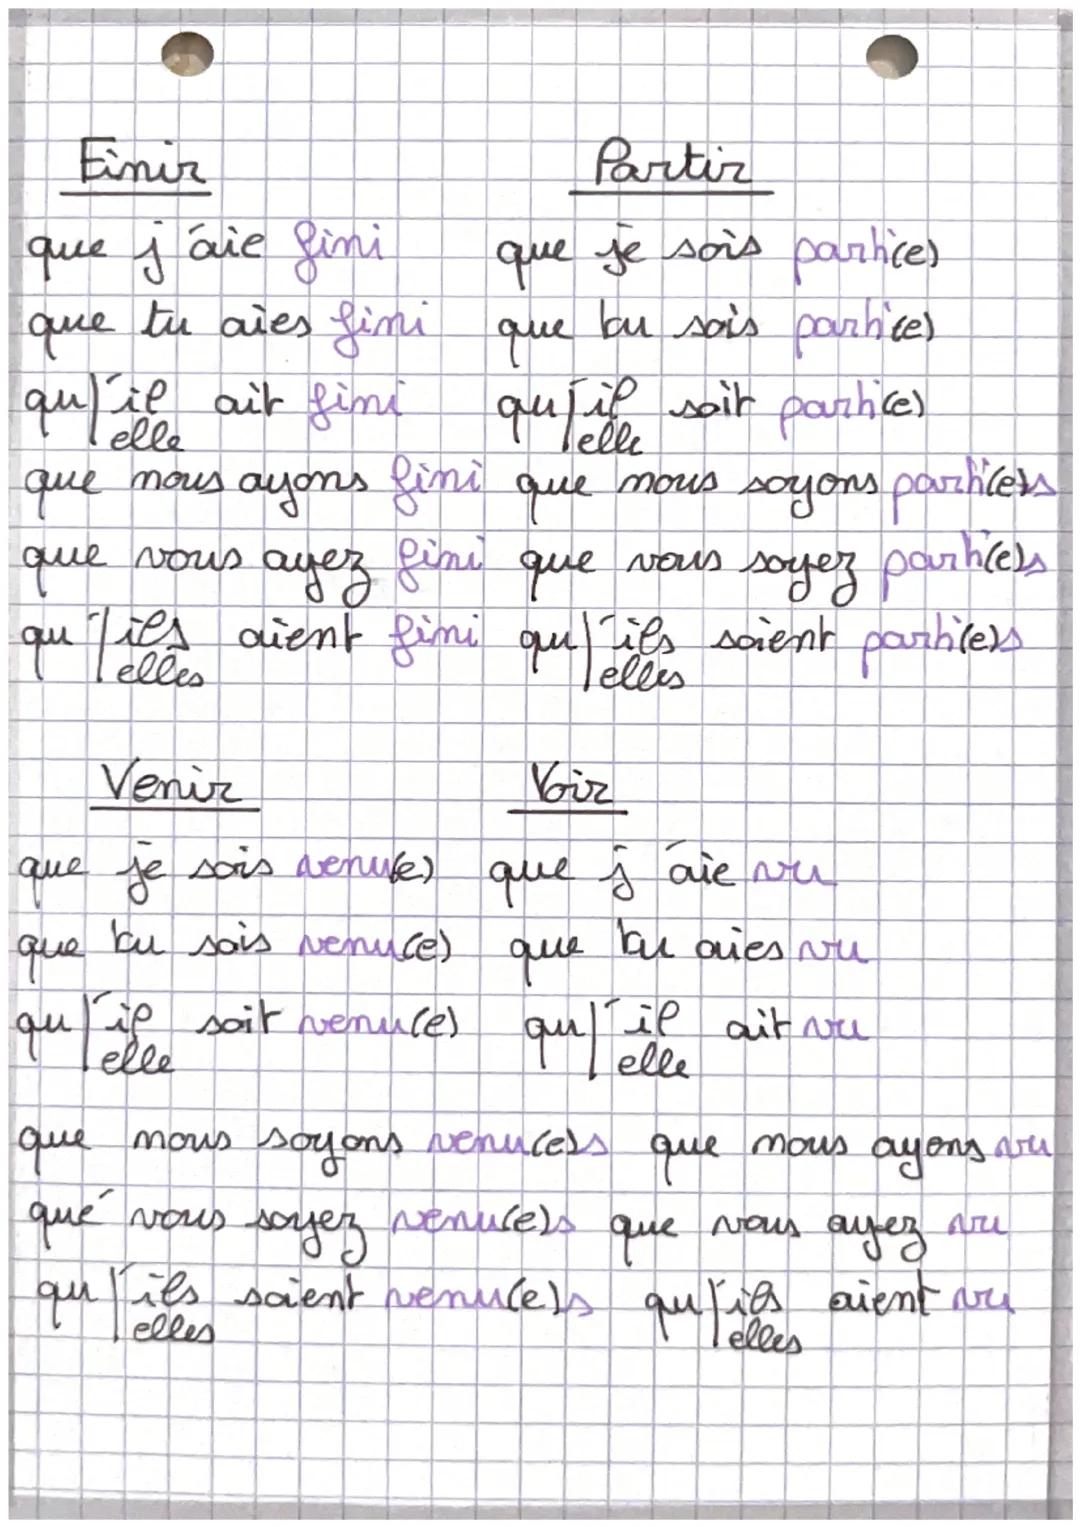 Finir Partir
que j'aie fini que je sois parti(e)
que tu aies fini que tu sois parti(e)
qu'il ait fini qu'il soit parti(e)
elle elle
que nous ayons fini que nous soyons parti(e)s
que vous ayez fini que vous soyez parti(e)s
qu'ils aient fini qu'ils soient parti(e)s
elles elles
Venir Voir
que je sois venu(e) que j'aie vu
que tu sois venu(e) que tu aies vu
qu'il soit venu(e) qu'il ait vu
elle elle
que nous soyons venu(e)s que nous ayons vu
que vous soyez venu(e)s que vous ayez vu
qu'ils soient venu(e)s qu'ils aient vu
elles elles